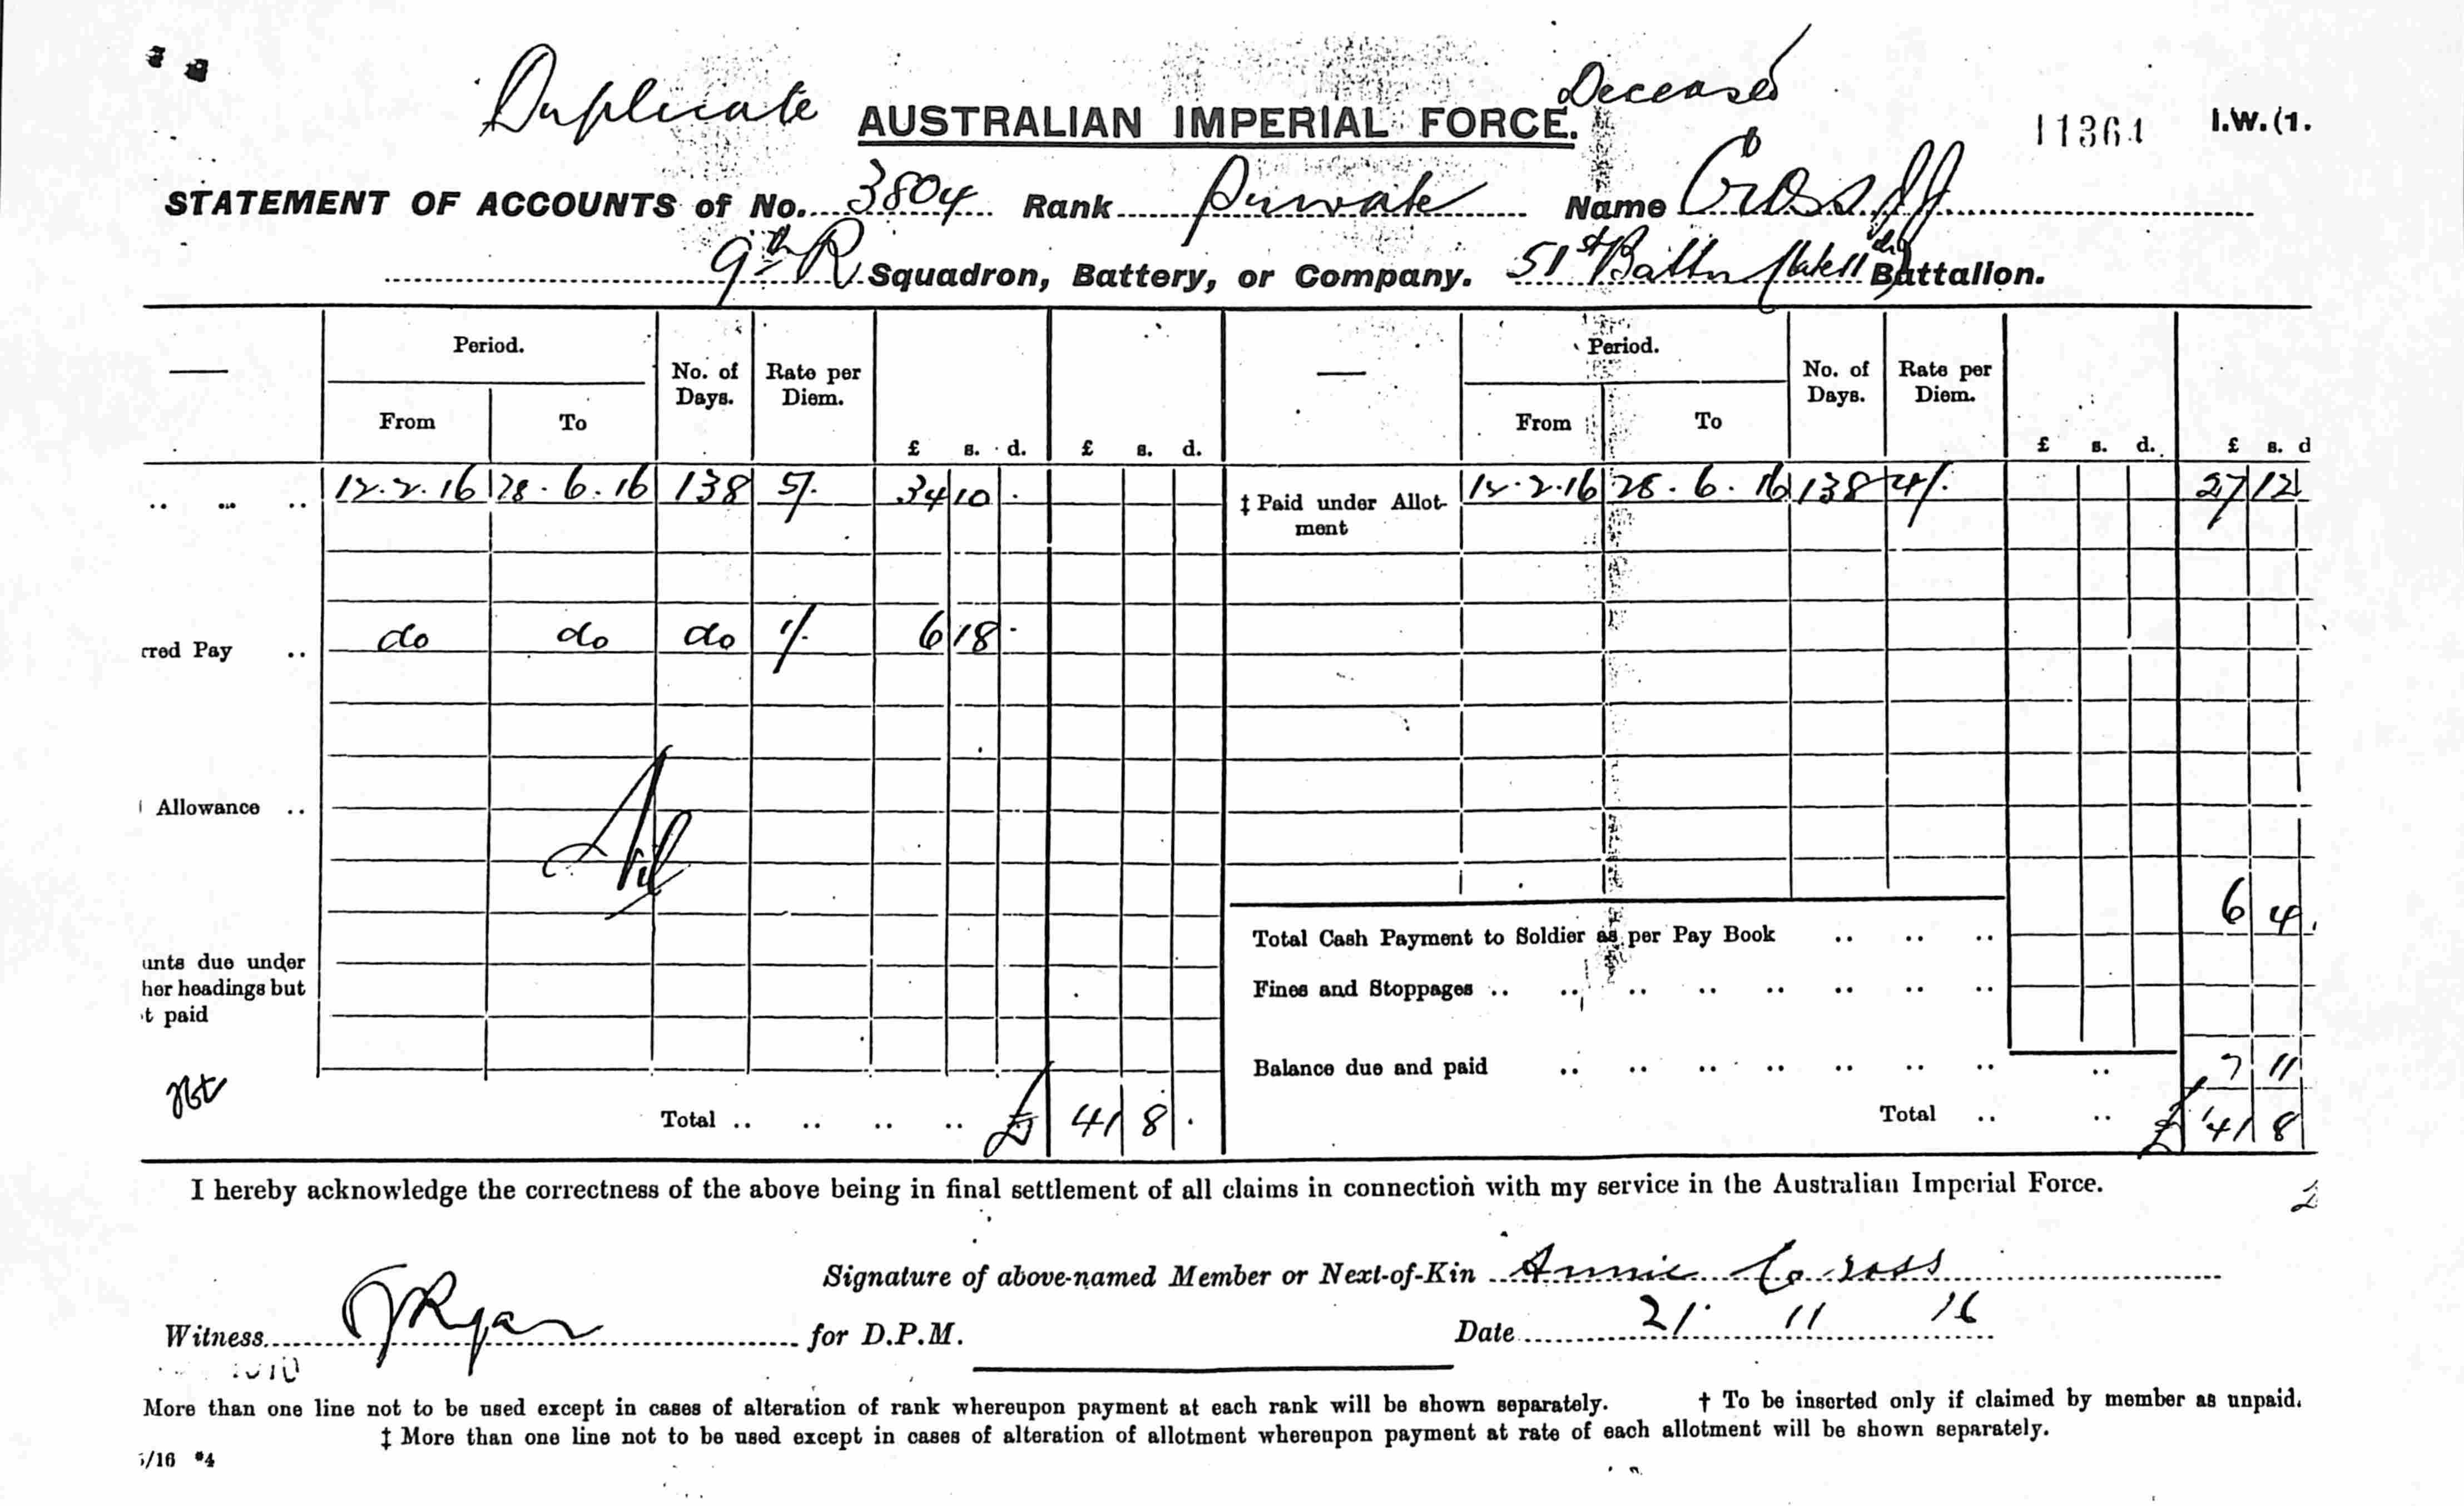 Duplicate AUSTRALIAN IMPERIAL FORCE. Deceased 11364 I.W.(1.
STATEMENT OF ACCOUNTS of No. 3804 Rank Private Name Cross
9th R Squadron, Battery, or Company. 51st Battn (late 11th) Battalion.
— Period. No. of Days. Rate per Diem. — Period. No. of Days. Rate per Diem.
From To £ s. d. £ s. d. From To £ s. d. £ s. d
.. ... .. 12.2.16 28.6.16 138 5/. 34 10 . ‡ Paid under Allot- 12.2.16 28.6.16 138 4/. 27 12
ment
rred Pay .. do do do 1/. 6 18 .
Allowance ..
Nil
6 4
Total Cash Payment to Soldier as per Pay Book .. .. ..
unts due under
her headings but Fines and Stoppages .. .. .. .. .. .. .. ..
t paid
Balance due and paid .. .. .. .. .. .. .. .. 7 11
Total .. .. .. .. £ 41 8 . Total .. .. £ 41 8
I hereby acknowledge the correctness of the above being in final settlement of all claims in connection with my service in the Australian Imperial Force.
Signature of above-named Member or Next-of-Kin Annie Cross
Witness JRyan for D.P.M. Date 21. 11 16
More than one line not to be used except in cases of alteration of rank whereupon payment at each rank will be shown separately. † To be inserted only if claimed by member as unpaid.
‡ More than one line not to be used except in cases of alteration of allotment whereupon payment at rate of each allotment will be shown separately.
/16 *4